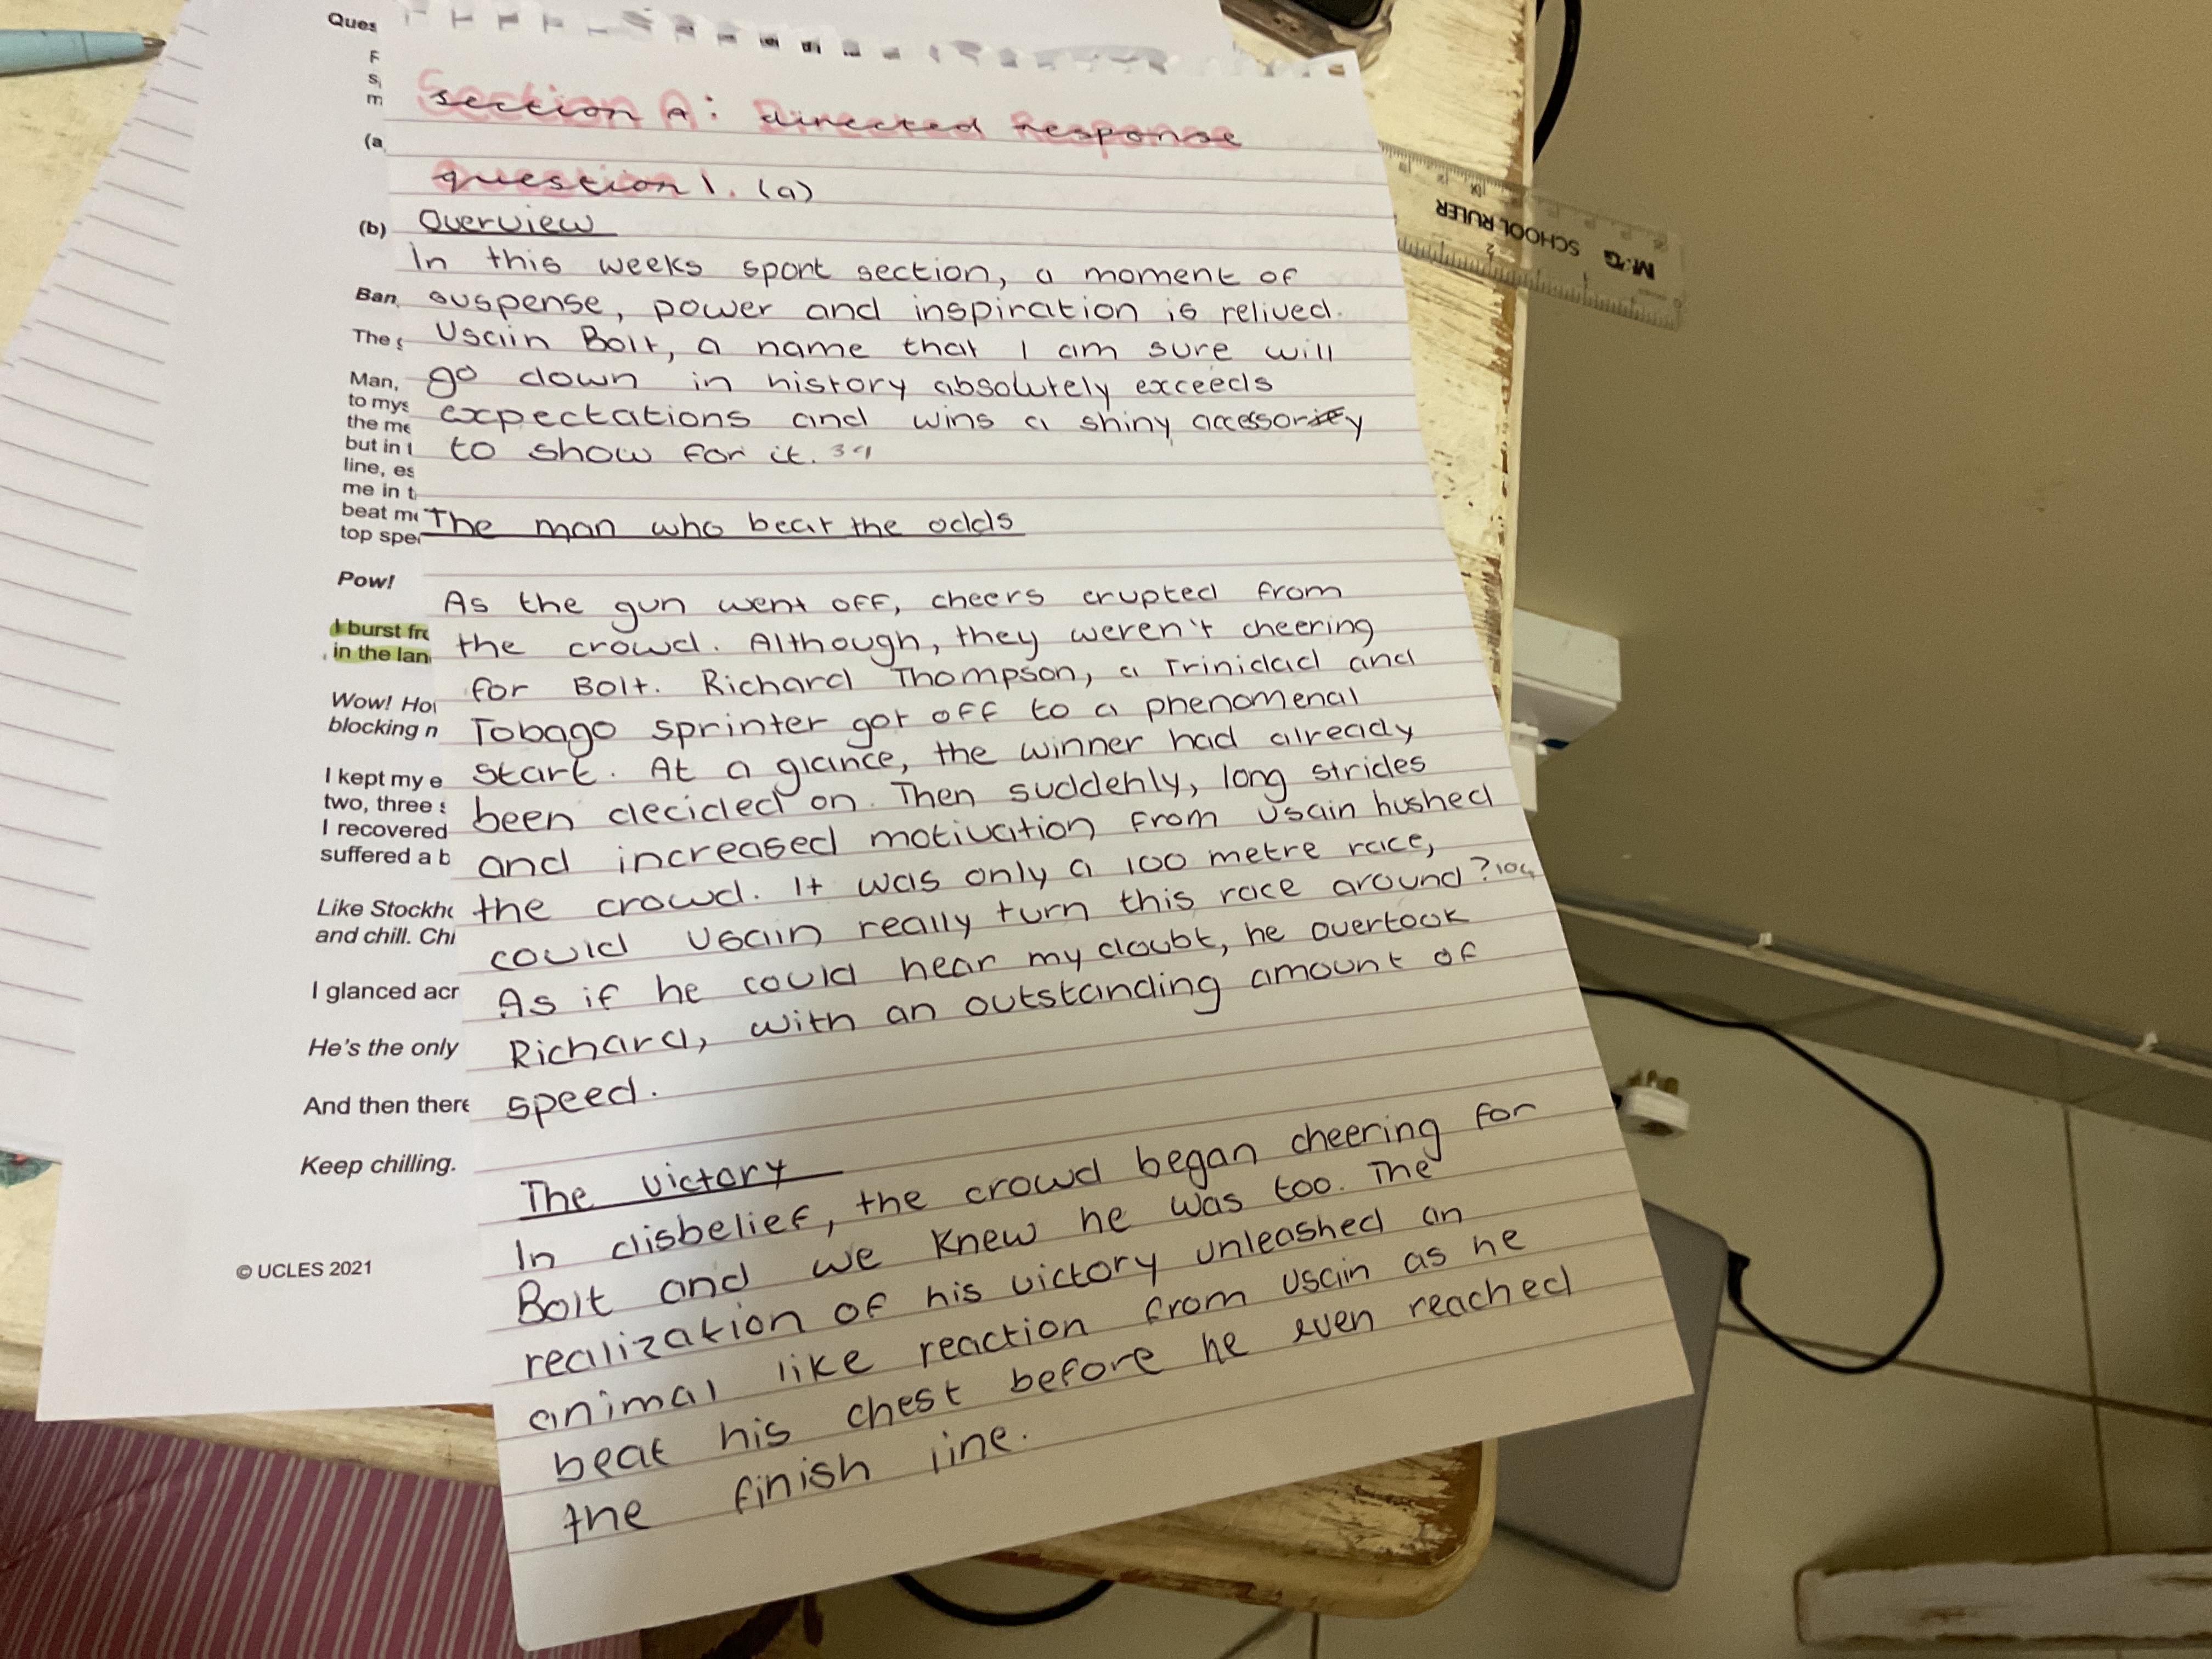 Ques
F
s
m
(a
(b)
Ban
The
Man,
to mys
the me
but in t
line, es
me in t
beat me
top spe
Pow!
I burst fr
in the lan
Wow! Ho
blocking n
I kept my e
two, three s
I recovered
suffered a b
Like Stockh
and chill. Ch
I glanced acr
He's the only
And then there
Keep chilling.
© UCLES 2021
Section A: Directed Response
question 1. (a)
Overview
In this weeks sport section, a moment of
suspense, power and inspiration is relived.
Usain Bolt, a name that I am sure will
go down in history absolutely exceeds
expectations and wins a shiny accessory
to show for it. 39
The man who beat the odds
As the gun went off, cheers erupted from
the crowd. Although, they weren't cheering
for Bolt. Richard Thompson, a Trinidad and
Tobago sprinter got off to a phenomenal
start. At a glance, the winner had already
been decided on. Then suddenly, long strides
and increased motivation from Usain hushed
the crowd. It was only a 100 metre race,
could Usain really turn this race around? 104
As if he could hear my doubt, he overtook
Richard, with an outstanding amount of
speed.
The victory
In disbelief, the crowd began cheering for
Bolt and we knew he was too. The
realization of his victory unleashed an
animal like reaction from Usain as he
beat his chest before he even reached
the finish line.
M&G SCHOOL RULER